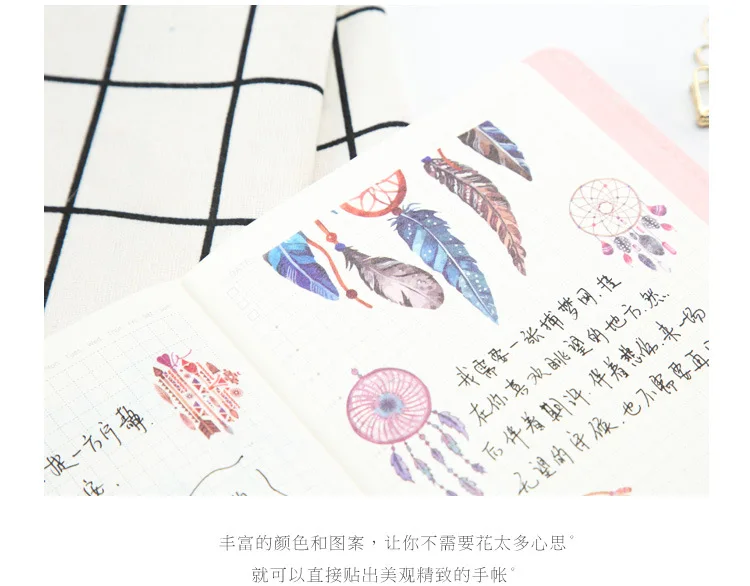 捉一方宁静.
我需要一张捕梦网.挂
在你喜欢眺望的地方.然
后伴着期许.伴着悲伤来一场
无望的守候.也不需要再
丰富的颜色和图案，让你不需要花太多心思。
就可以直接贴出美观精致的手帐。